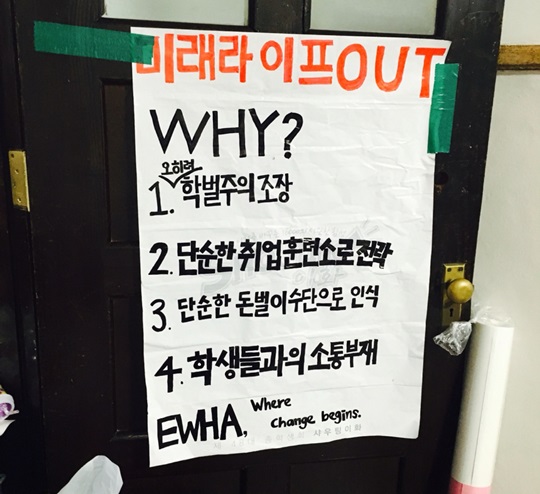 미래라이프OUT
WHY?
오히려
1. 학벌주의 조장
2. 단순한 취업훈련소로 전락
3. 단순한 돈벌이 수단으로 인식
4. 학생들과의 소통부재
EWHA, Where
change begins.